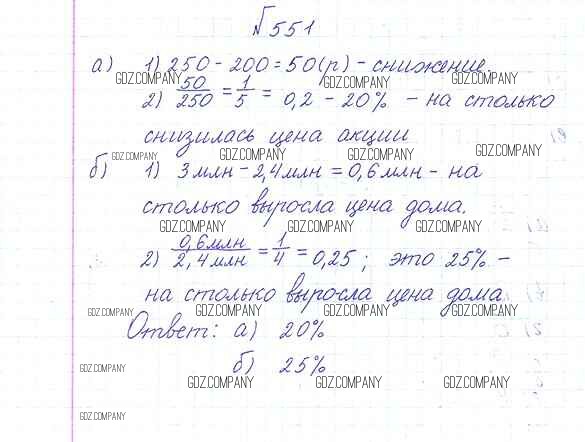 №551
а) 1) 250 - 200 = 50(р) - снижение.
GDZ.COMPANY GDZ.COMPANY GDZ.COMPANY
2) 50/250 = 1/5 = 0,2 - 20% - на столько
снизилась цена акции
GDZ.COMPANY GDZ.COMPANY GDZ.COMPANY GDZ.COMPANY
б) 1) 3 млн - 2,4 млн = 0,6 млн - на
столько выросла цена дома.
GDZ.COMPANY GDZ.COMPANY GDZ.COMPANY
2) 0,6 млн/2,4 млн = 1/4 = 0,25 ; это 25% -
на столько выросла цена дома
GDZ.COMPANY GDZ.COMPANY GDZ.COMPANY GDZ.COMPANY
Ответ: а) 20%
б) 25%
GDZ.COMPANY
GDZ.COMPANY GDZ.COMPANY GDZ.COMPANY
GDZ.COMPANY